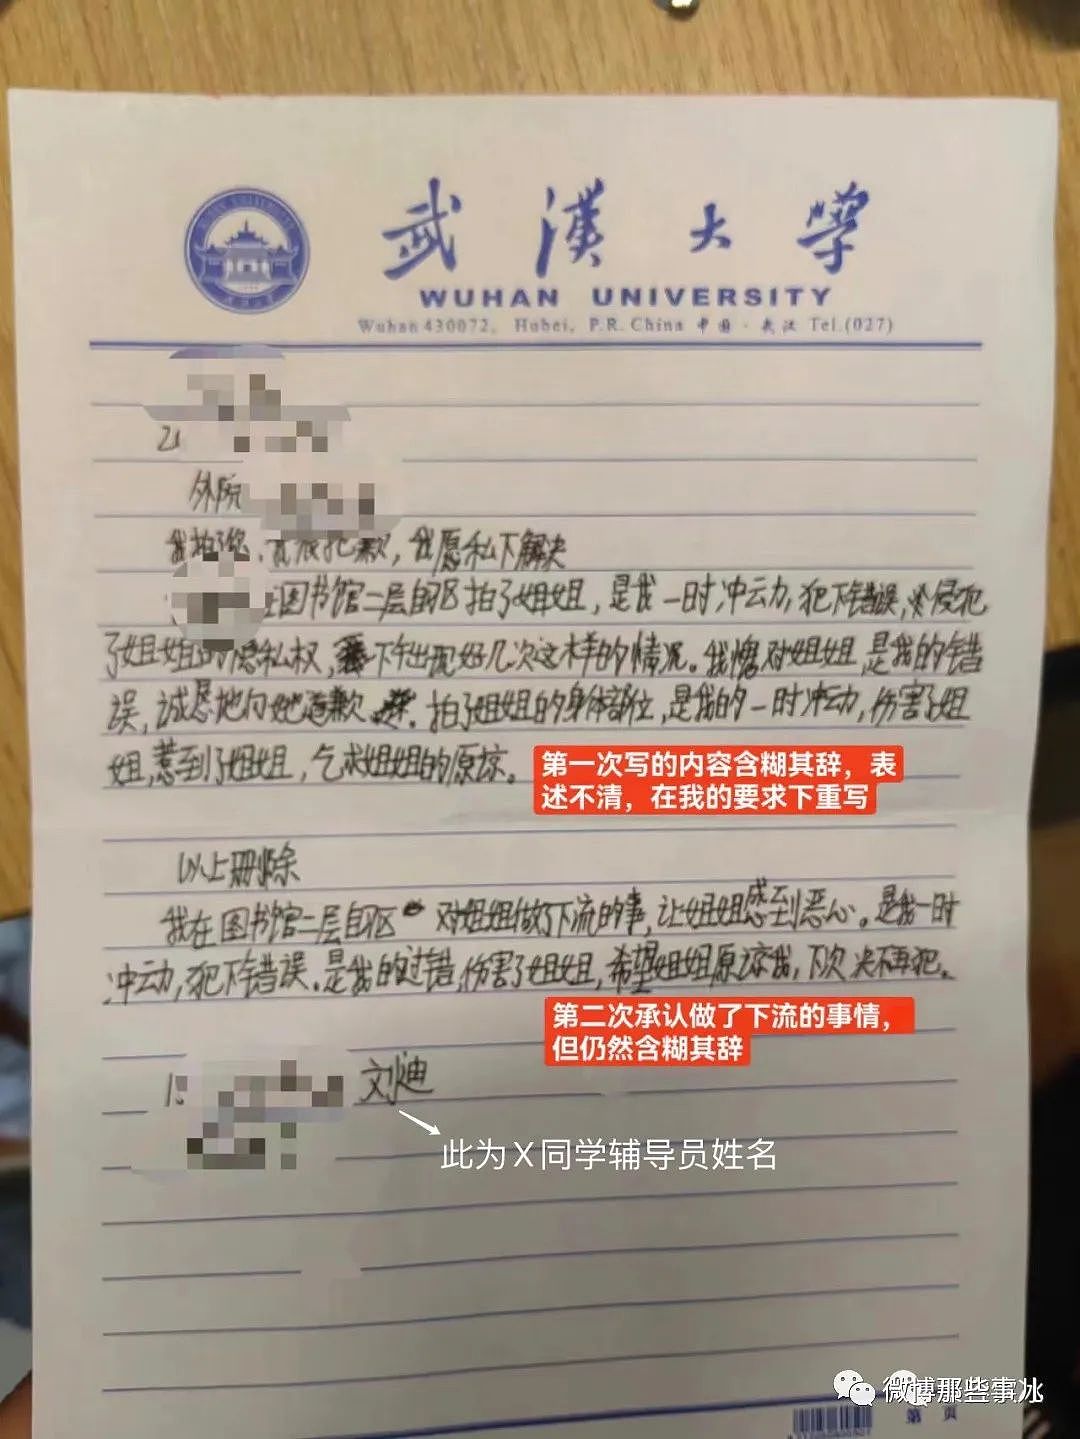 武漢大學
WUHAN UNIVERSITY
Wuhan 430072, Hubei, P.R. China 中国·武汉 Tel.(027)
21
外院
我拍了您、道歉,我愿私下解决
在图书馆二层自习区拍了姐姐,是我一时冲动,犯下错误,侵犯
了姐姐的隐私权,下午出现好几次这样的情况。我愧对姐姐,是我的错
误,诚恳地向她道歉。拍了姐姐的身体部位,是我的一时冲动,伤害了姐
姐,惹到了姐姐,乞求姐姐的原谅。
第一次写的内容含糊其辞,表
述不清,在我的要求下重写
以上删除
我在图书馆二层自习区对姐姐做了下流的事,让姐姐感到恶心。是我一时
冲动,犯下错误。是我的过错,伤害了姐姐,希望姐姐原谅我,下次决不再犯。
第二次承认做了下流的事情,
但仍然含糊其辞
刘迪
此为X同学辅导员姓名
微博那些事儿
第 页